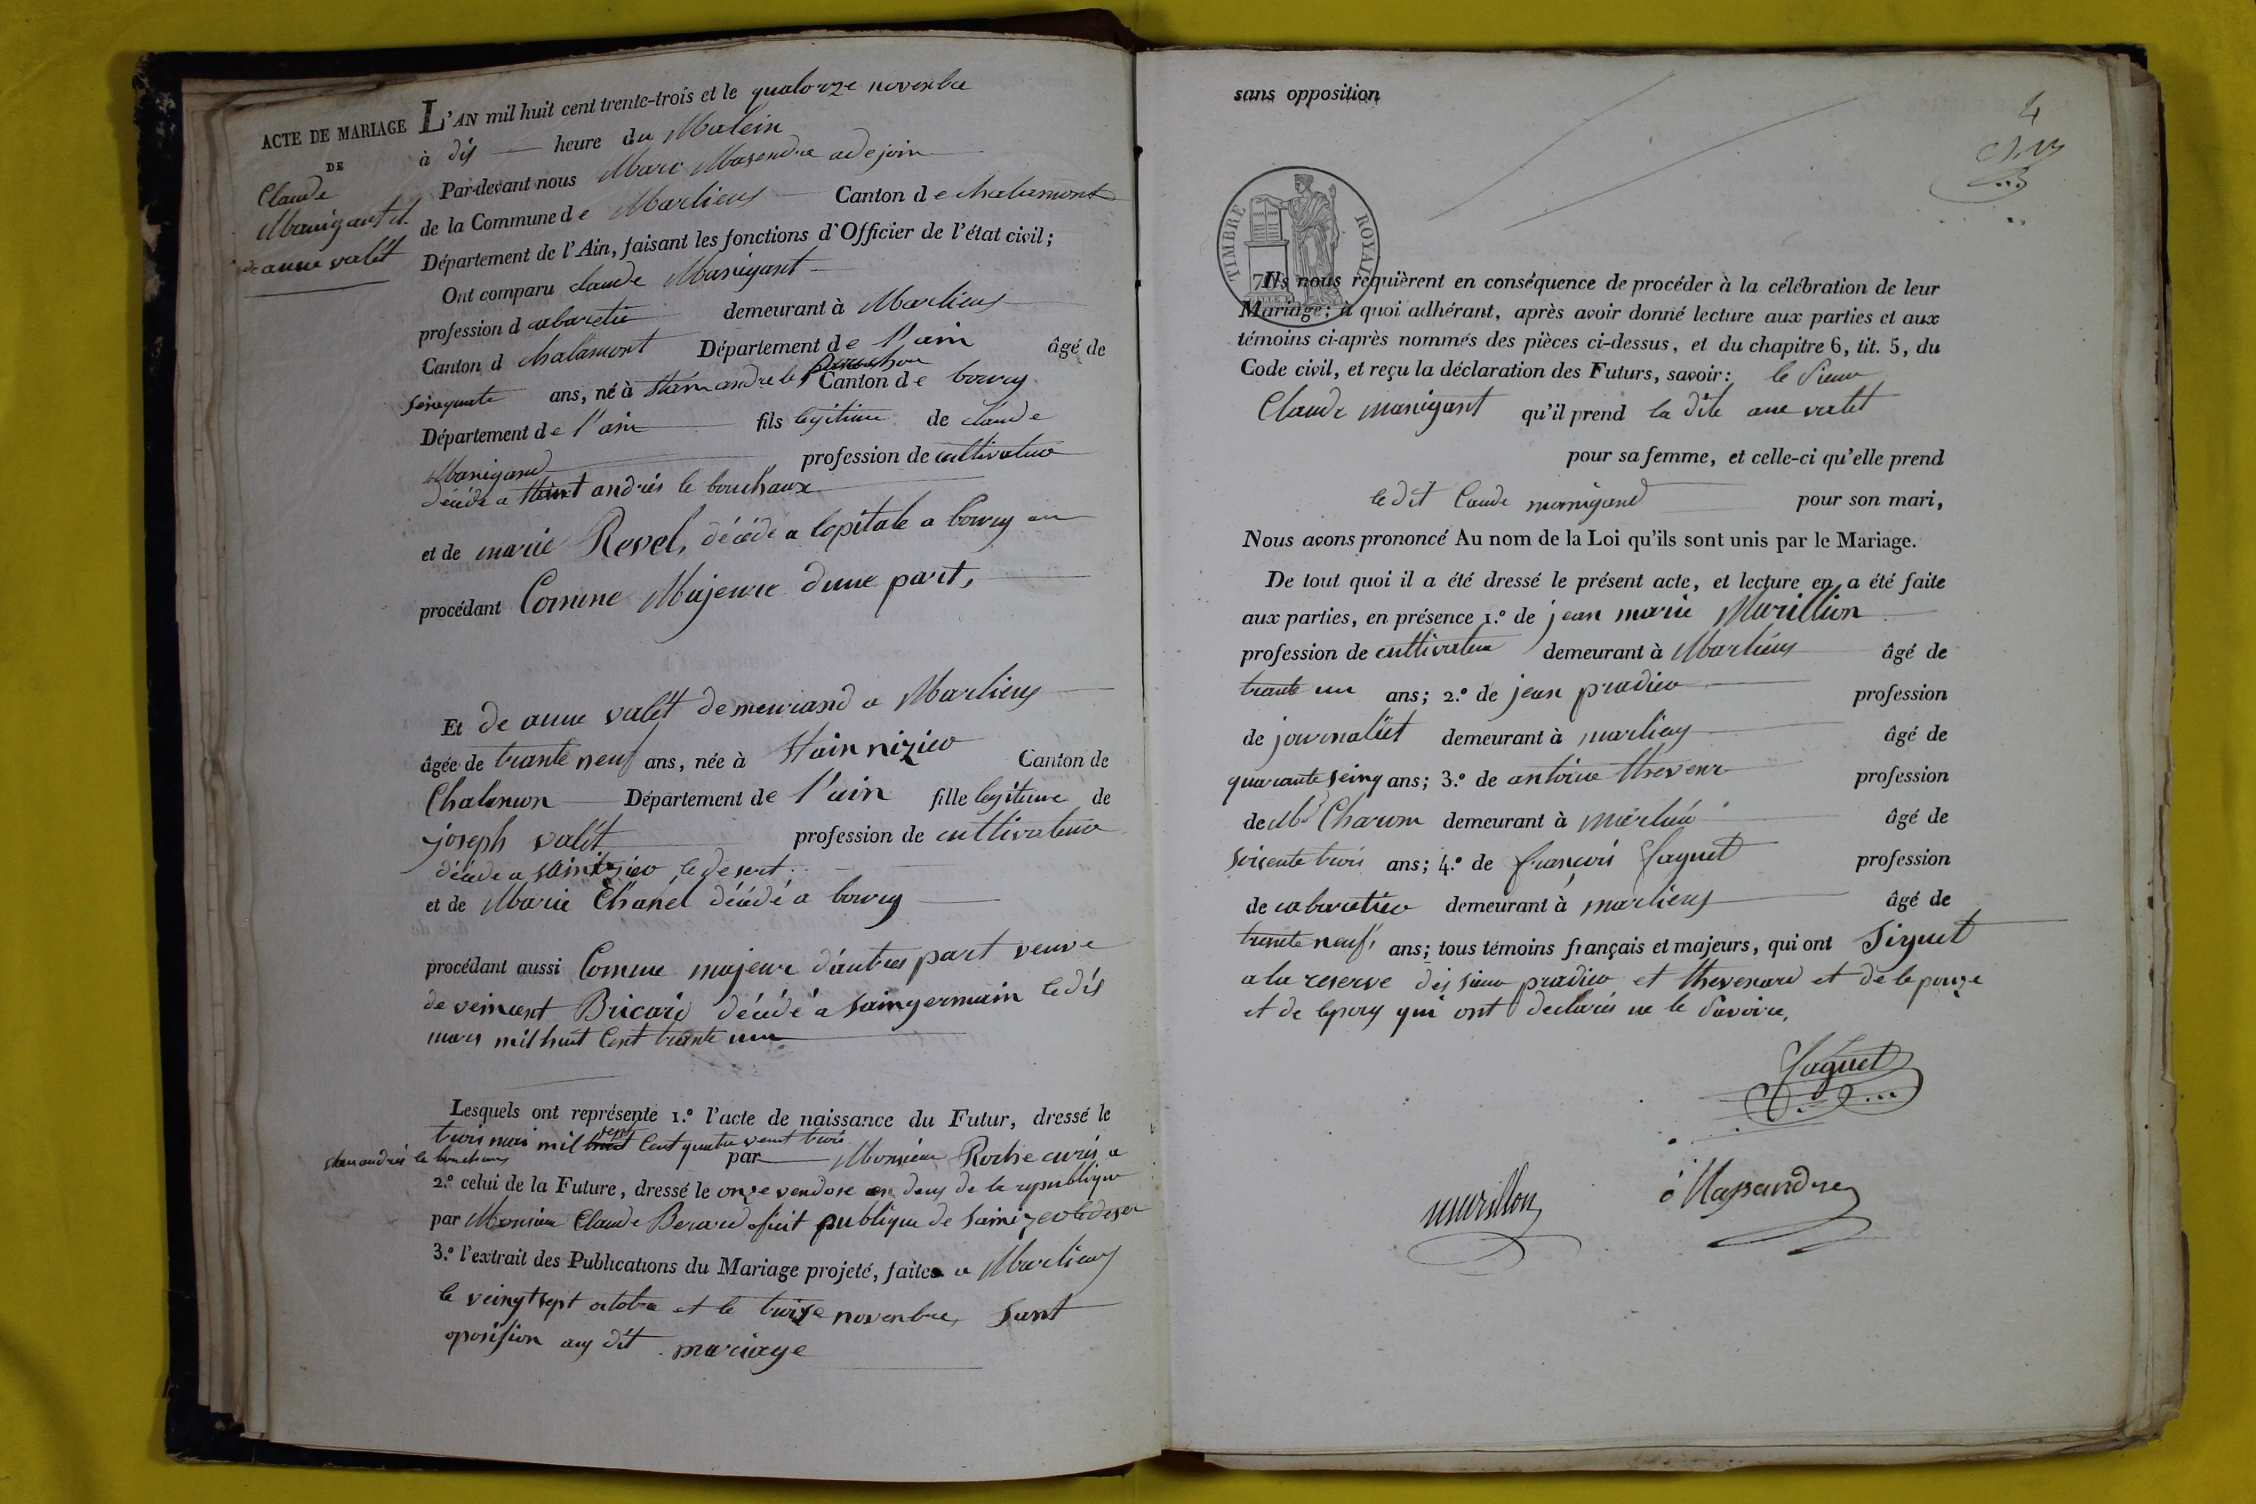 ACTE DE MARIAGE
DE
Claude
Manigant et
de anne valét
L'AN mil huit cent trente-trois et le quatorze novenbre
à dis heure du Matein
Par-devant nous Marc Masendre adejoin
de la Commune de Marlieux Canton de chalamont
Département de l'Ain, faisant les fonctions d'Officier de l'état civil;
Ont comparu claude Manigant
profession d cabaretie demeurant à Marlieux
Canton d chalamont Département de l'ain âgé de
seinquate ans, né à stain andre le bouchou Canton de bourg
Département de l'ain fils legitime de claude
Manigand profession de cultivateur
décéde a staint andrés le bouchaux
et de marie Revel, décéde a lopitale a bourg en
procédant Comme Majeure dune part,
Et de anne valét demeurand a Marlieux
âgée de trante neuf ans, née à stain nizieo Canton de
Chalamon Département de l'ain fille legitime de
joseph valét profession de cultivateur
décéde a sainizieo le desert
et de Marie Chanél décédé a bourg
procédant aussi Comme majeur d'autres part veuve
de veincent Bricard décédé a saingermain le dis
mars mil huit Cent trante un
Lesquels ont représenté 1.º l'acte de naissance du Futur, dressé le
trois mai mil sept Cent quatre veint trois
par Monsieur Roche curés a
stain andrés le bouchoux
2.º celui de la Future, dressé le onze vendose en deux de la republique
par Monsieur Claude Berard ofisit publique de sainizeo ledeser
3.º l'extrait des Publications du Mariage projeté, faites a Marlieux
le veingt sept octobre et le troise novenbre, sant
oposision aux dit mariage
sans opposition
4
TIMBRE ROYAL
Ils nous requièrent en conséquence de procéder à la célébration de leur
Mariage; à quoi adhérant, après avoir donné lecture aux parties et aux
témoins ci-après nommés des pièces ci-dessus, et du chapitre 6, tit. 5, du
Code civil, et reçu la déclaration des Futurs, savoir: le sieur
Claude manigant qu'il prend la dite ane valet
pour sa femme, et celle-ci qu'elle prend
le dit Caude manigand pour son mari,
Nous avons prononcé Au nom de la Loi qu'ils sont unis par le Mariage.
De tout quoi il a été dressé le présent acte, et lecture en a été faite
aux parties, en présence 1.º de jean marie Murillion
profession de cultivateur demeurant à Marlieux âgé de
trante un ans; 2.º de jean pradieo profession
de journaliét demeurant à marlieux âgé de
quarante seinq ans; 3.º de antoine thevenr profession
de Md Charon demeurant à marlieu âgé de
soisente trois ans; 4.º de françois Jaquet profession
de cabaretieo demeurant à marlieux âgé de
trante neuf, ans; tous témoins français et majeurs, qui ont Siguet
a la reserve des sieur pradieo et thevenard et de lepouze
et de lepoux qui ont declarés ne le savoire,
Jaquet
murillon
Massandre